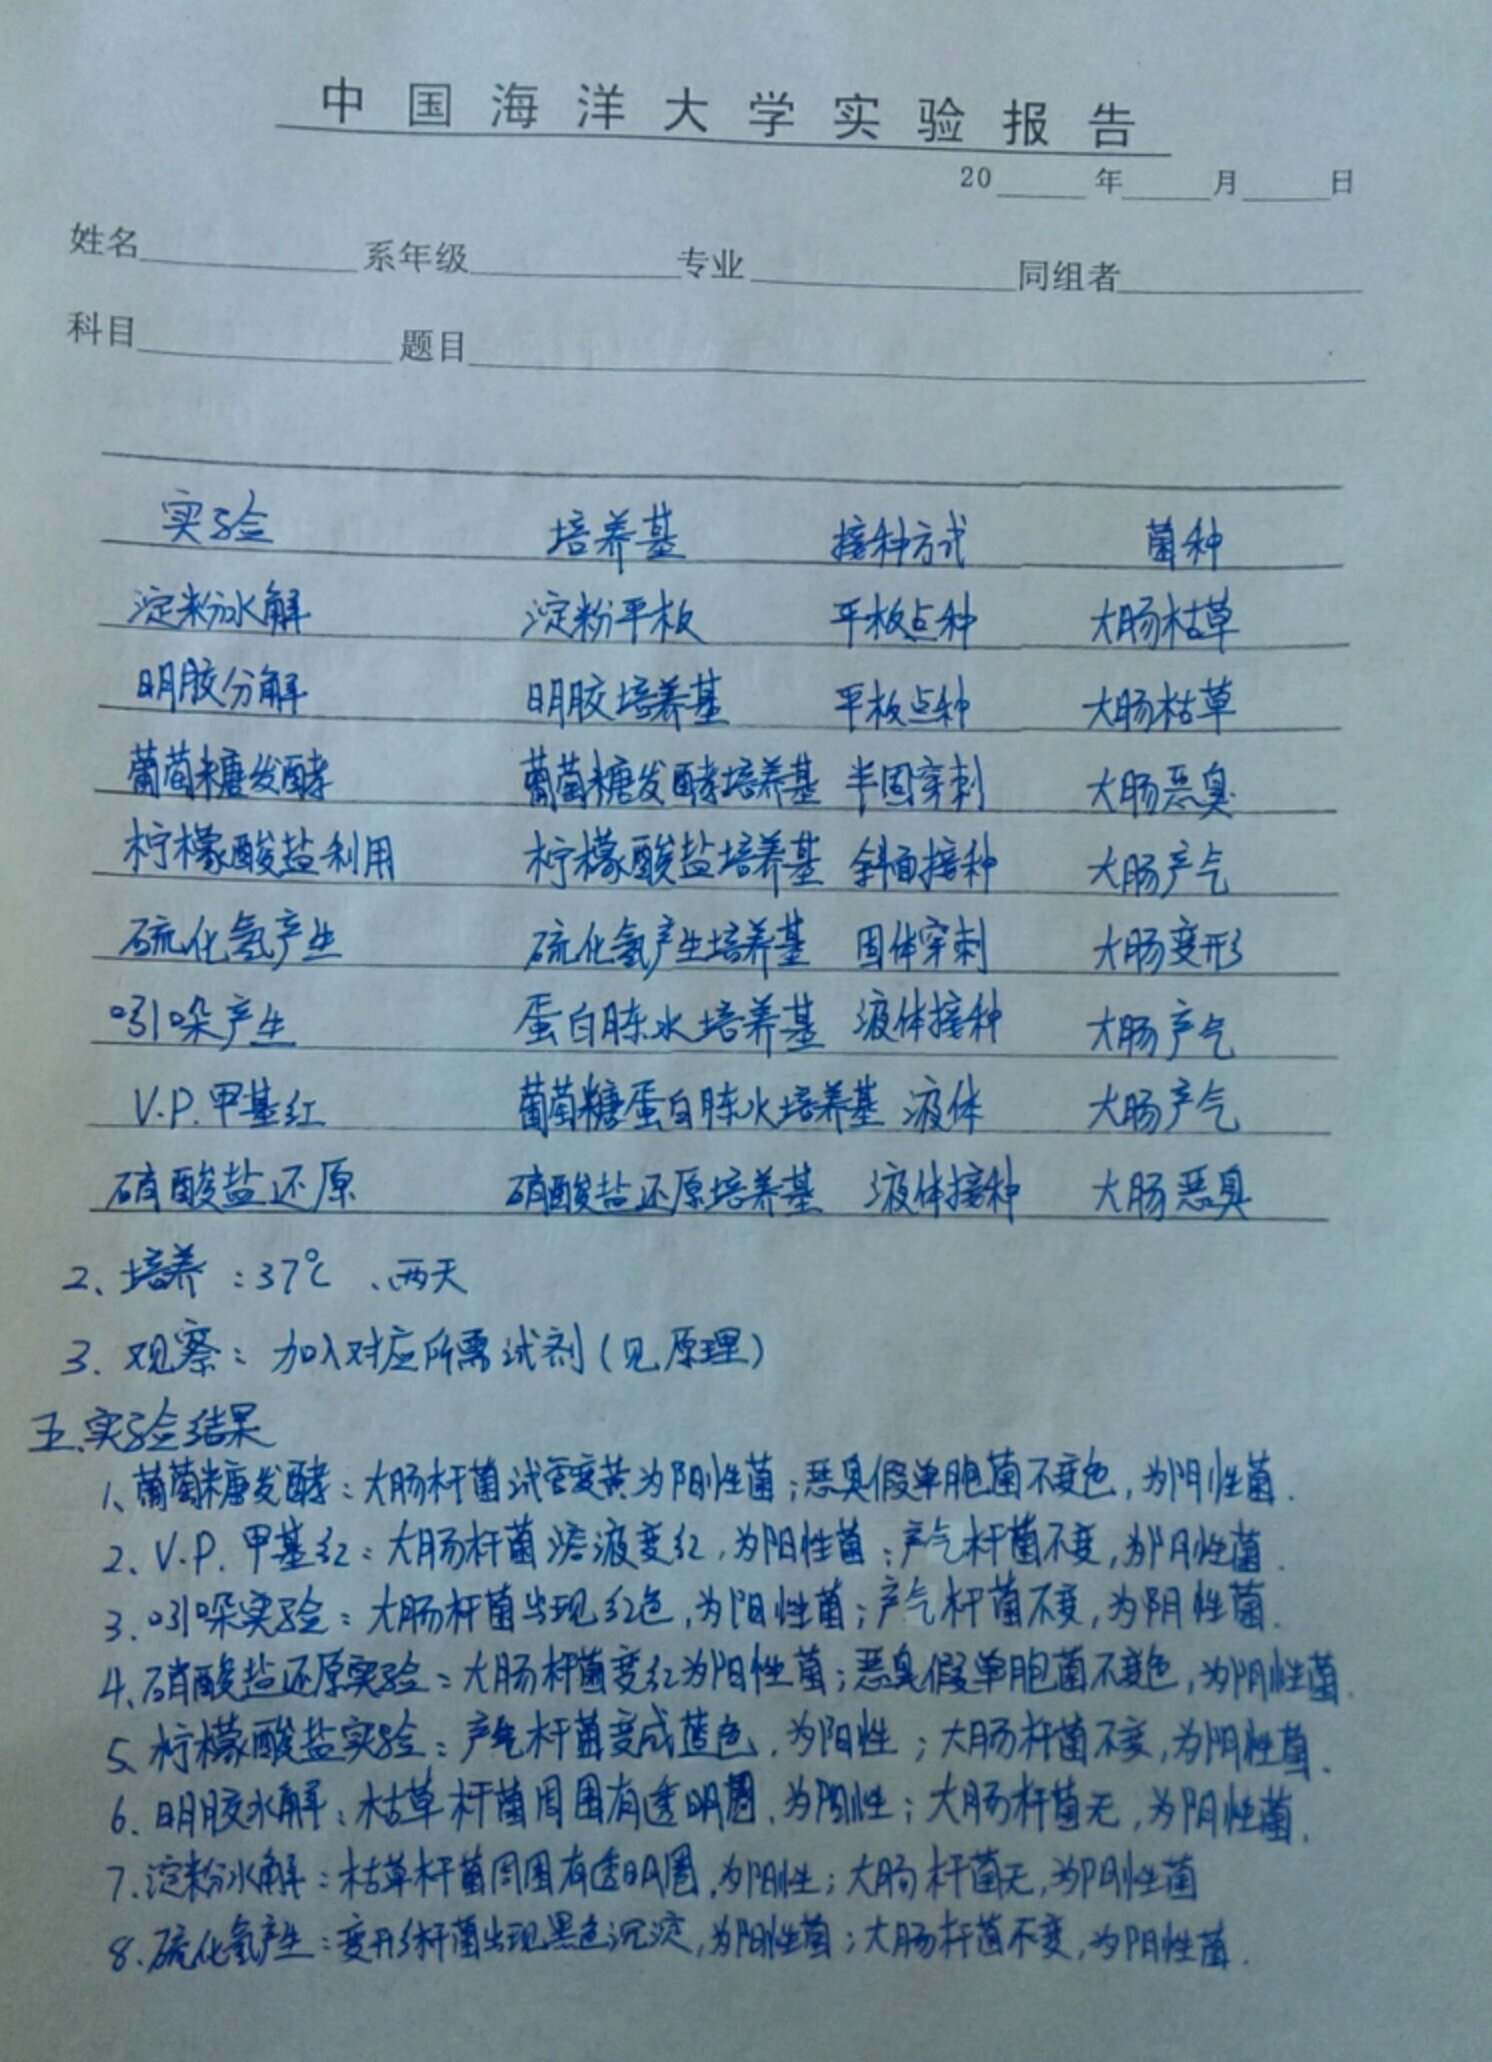 中国海洋大学实验报告
20 年 月 日
姓名 系年级 专业 同组者
科目 题目
实验 培养基 接种方式 菌种
淀粉水解 淀粉平板 平板点种 大肠枯草
明胶分解 明胶培养基 平板点种 大肠枯草
葡萄糖发酵 葡萄糖发酵培养基 半固穿刺 大肠恶臭
柠檬酸盐利用 柠檬酸盐培养基 斜面接种 大肠产气
硫化氢产生 硫化氢产生培养基 固体穿刺 大肠变形
吲哚产生 蛋白胨水培养基 液体接种 大肠产气
V.P.甲基红 葡萄糖蛋白胨水培养基 液体 大肠产气
硝酸盐还原 硝酸盐还原培养基 液体接种 大肠恶臭
2、培养:37℃、两天
3.观察:加入对应所需试剂(见原理)
五.实验结果
1、葡萄糖发酵:大肠杆菌试管变黄为阳性菌;恶臭假单胞菌不变色,为阴性菌.
2、V.P.甲基红:大肠杆菌溶液变红,为阳性菌;产气杆菌不变,为阴性菌.
3.吲哚实验:大肠杆菌出现红色,为阳性菌;产气杆菌不变,为阴性菌.
4、硝酸盐还原实验:大肠杆菌变红为阳性菌;恶臭假单胞菌不变色,为阴性菌.
5、柠檬酸盐实验:产气杆菌变成蓝色,为阳性;大肠杆菌不变,为阴性菌.
6.明胶水解:枯草杆菌周围有透明圈,为阳性;大肠杆菌无,为阴性菌.
7.淀粉水解:枯草杆菌周围有透明圈,为阳性;大肠杆菌无,为阴性菌
8.硫化氢产生:变形杆菌出现黑色沉淀,为阳性菌;大肠杆菌不变,为阴性菌.